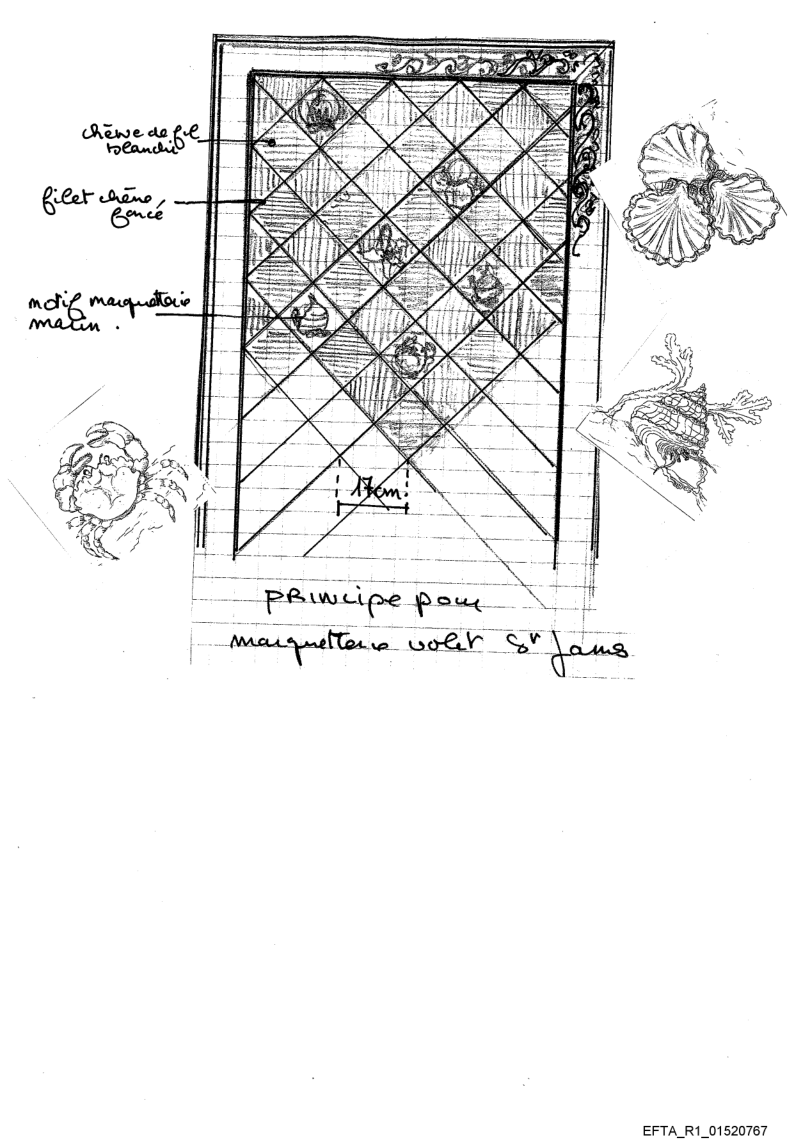 chêne de fil
blanchi
filet chêne
foncé
motif marquetterie
marin .
17cm.
PRINCIPE pour
marquetterie volet St James
EFTA_R1_01520767